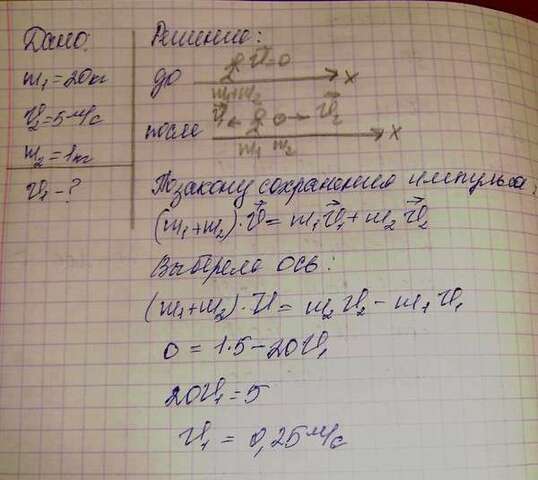 Дано:
m₁=20кг
V₂=5 м/с
m₂=1кг
V₁-?
Решение:
до
V⃗=0
x
m₁+m₂
после
V⃗₁
V⃗₂
x
m₁ m₂
По закону сохранения импульса:
(m₁+m₂)·V⃗=m₁V⃗₁+m₂V⃗₂
Выберем ось:
(m₁+m₂)·V=m₂V₂-m₁V₁
0=1·5-20V₁
20V₁=5
V₁=0,25 м/с